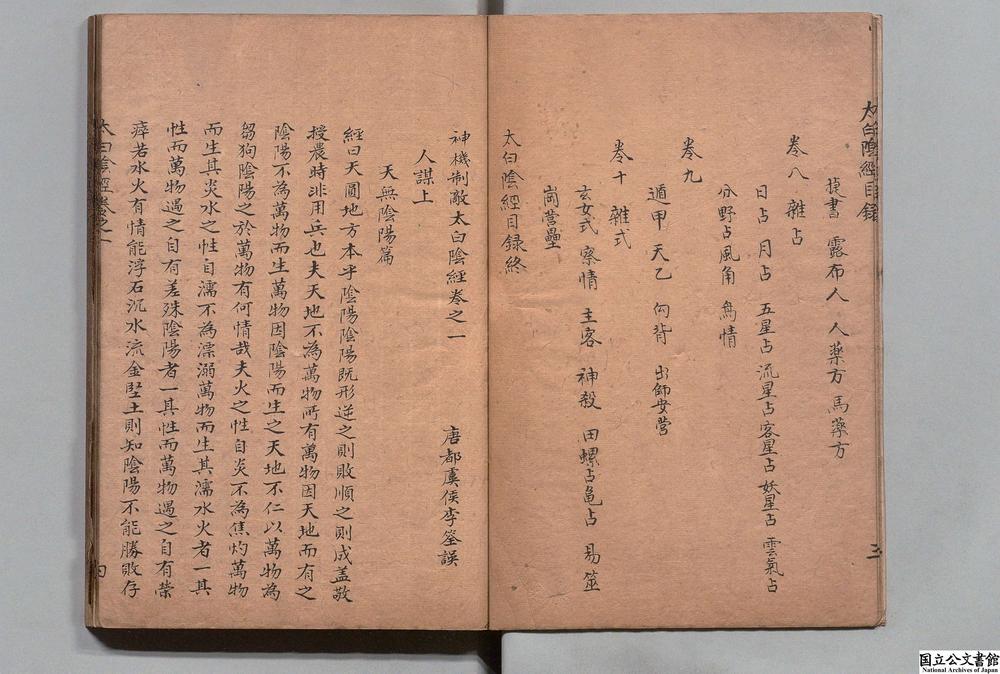 太白陰經目録
捷書 露布人 人藥方 馬藥方
卷八 雜占
日占 月占 五星占 流星占 客星占 妖星占 雲氣占
分野占 風角 鳥情
卷九
遁甲 天乙 勾背 出師安營
卷十 雜式
玄女式 察情 主客 神殺 田螺占 龜占 易筮
崗營壘
太白陰經目録終
三
神機制敵太白陰經卷之一
唐都虞侯李筌譔
人謀上
天無陰陽篇
經曰天圓地方本乎陰陽陰陽既形逆之則敗順之則成盖敬
授農時非用兵也夫天地不為萬物所有萬物因天地而有之
陰陽不為萬物而生萬物因陰陽而生之天地不仁以萬物為
芻狗陰陽之於萬物有何情哉夫火之性自炎不為焦灼萬物
而生其炎水之性自濡不為漂溺萬物而生其濡水火者一其
性而萬物遇之自有差殊陰陽者一其性而萬物遇之自有榮
瘁若水火有情能浮石沉水流金堅土則知陰陽不能勝敗存
太白陰經卷之一
四
国立公文書館
National Archives of Japan